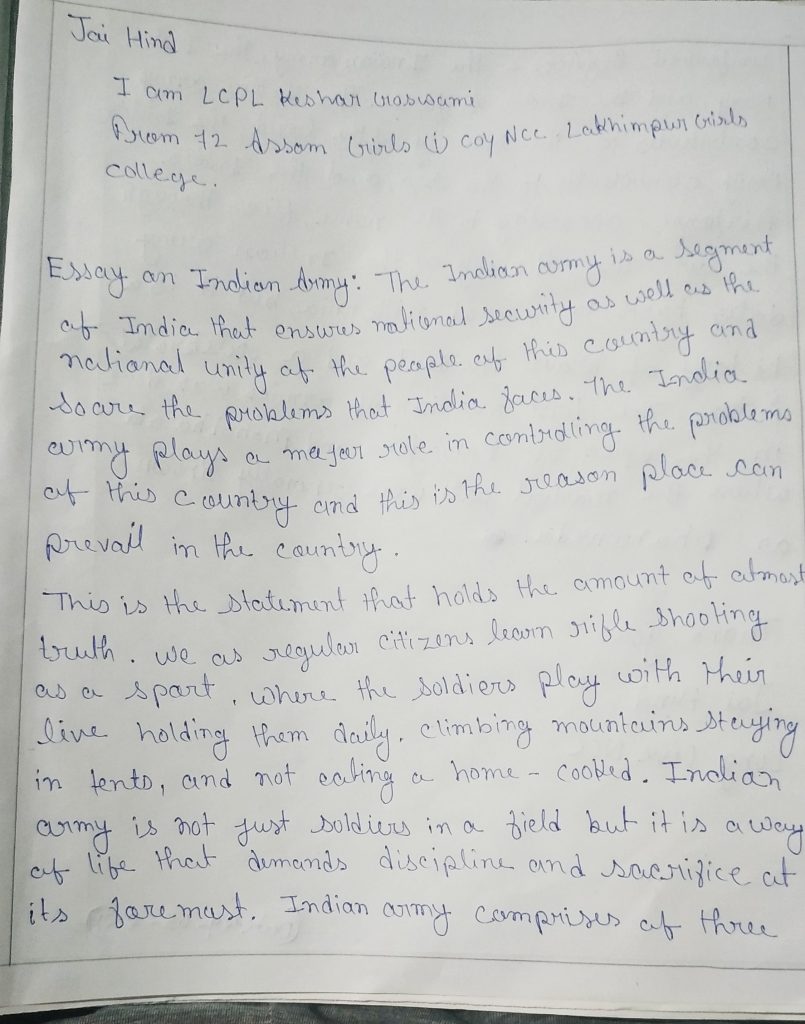 Jai Hind
I am LCPL Keshar Goswami
From 72 Assam Girls (i) coy NCC Lakhimpur Girls
college.
Essay on Indian Army: The Indian army is a segment
of India that ensures national security as well as the
national unity of the people of this country and
so are the problems that India faces. The India
army plays a major role in controlling the problems
of this country and this is the reason place can
prevail in the country.
This is the statement that holds the amount of atmost
truth. we as regular citizens learn rifle shooting
as a sport, where the soldiers play with their
live holding them daily, climbing mountains staying
in tents, and not eating a home-cooked. Indian
army is not just soldiers in a field but it is a way
of life that demands discipline and sacrifice at
its foremost. Indian army comprises of three